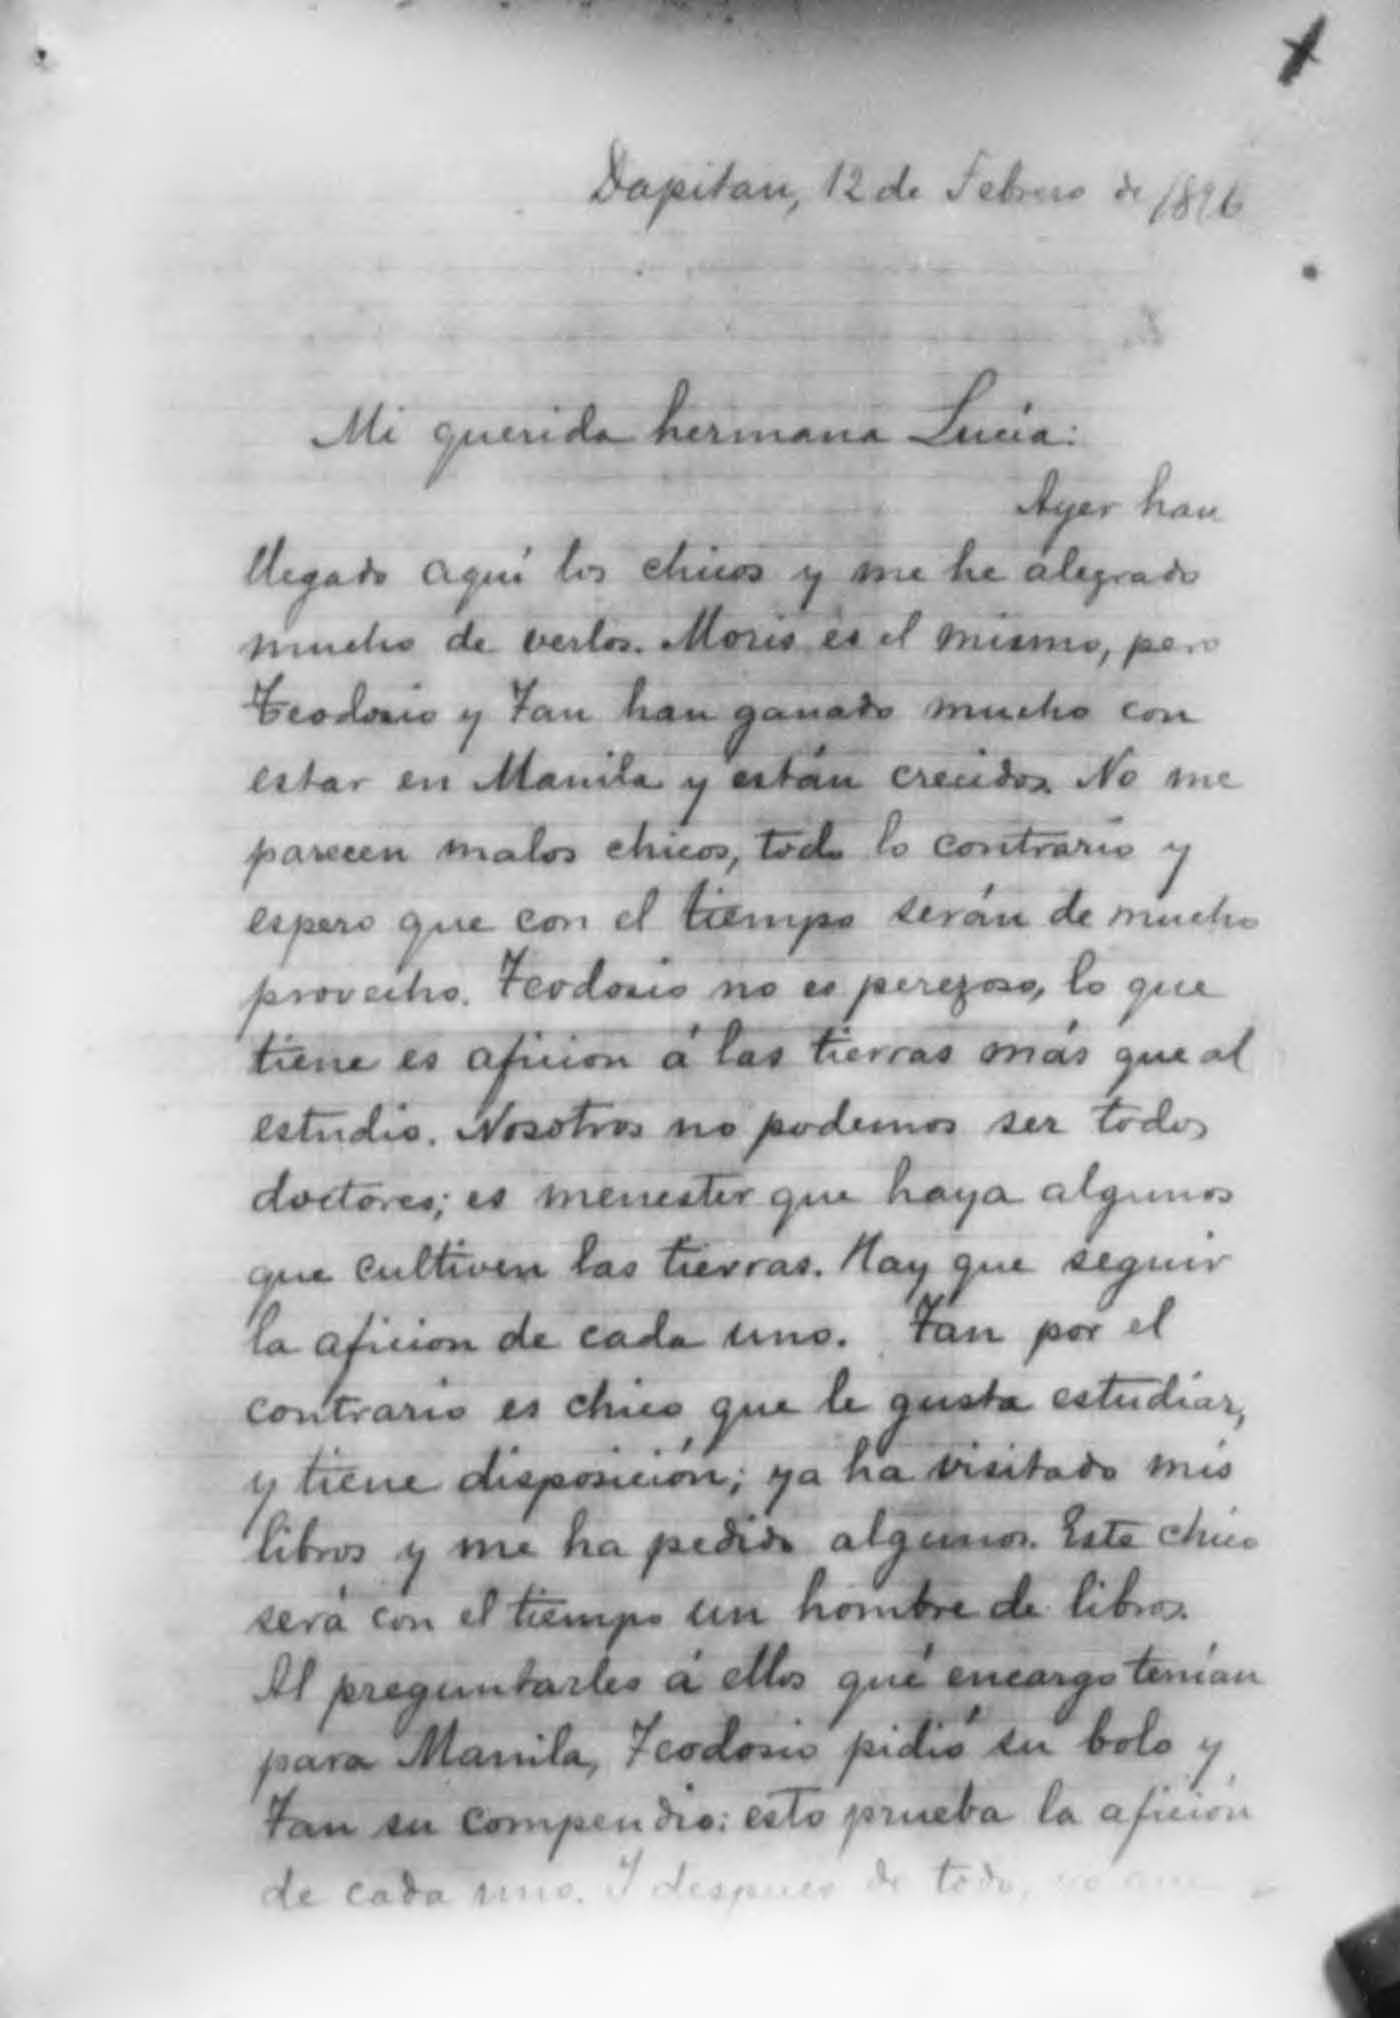 Dapitan, 12 de Febrero de 1896
Mi querida hermana Lucía:
Ayer han
llegado aquí los chicos y me he alegrado
mucho de verlos. Moris es el mismo, pero
Teodosio y Tan han ganado mucho con
estar en Manila y están crecidos. No me
parecen malos chicos, todo lo contrario y
espero que con el tiempo serán de mucho
provecho. Teodosio no es perezoso, lo que
tiene es aficion á las tierras más que al
estudio. Nosotros no podemos ser todos
doctores; es menester que haya algunos
que cultiven las tierras. Hay que seguir
la aficion de cada uno. Tan por el
contrario es chico que le gusta estudiar,
y tiene disposición; ya ha visitado mis
libros y me ha pedido algunos. Este chico
será con el tiempo un hombre de libros.
Al preguntarles á ellos qué encargo tenían
para Manila, Teodosio pidió su bolo y
Tan su compendio: esto prueba la afición
de cada uno. Y despues de todo, no